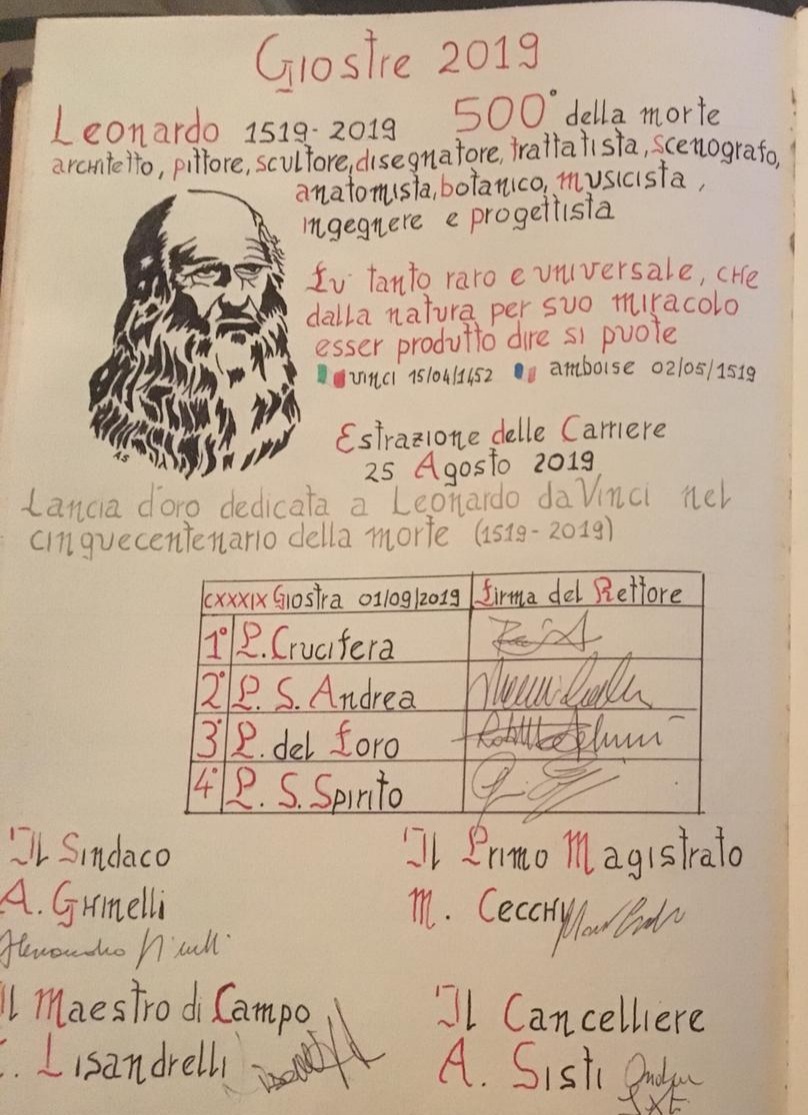 Giostre 2019
Leonardo 1519-2019 500° della morte
architetto, pittore, scultore, disegnatore, trattatista, scenografo,
anatomista, botanico, musicista,
ingegnere e progettista
Fu tanto raro e universale, che
dalla natura per suo miracolo
esser produtto dire si puote
vinci 15/04/1452 amboise 02/05/1519
AS
Estrazione delle Carriere
25 Agosto 2019
Lancia d'oro dedicata a Leonardo da Vinci nel
cinquecentenario della morte (1519-2019)
CXXXIX Giostra 01/09/2019 Firma del Rettore
1° P. Crucifera
2° P. S. Andrea
3° P. del Foro
4° P. S. Spirito
Il Sindaco Il Primo Magistrato
A. Ghinelli M. Cecchi
Il Maestro di Campo Il Cancelliere
. Lisandrelli A. Sisti